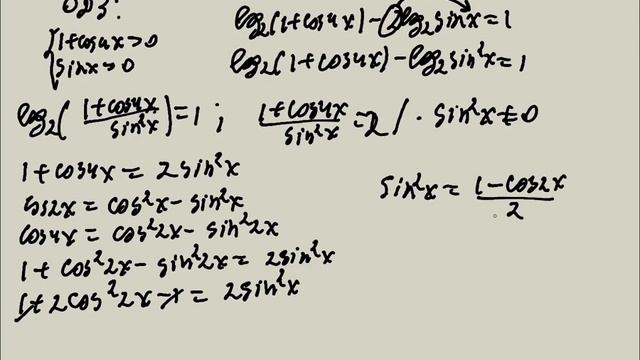 ОДЗ:
{1+cos4x>0
{sinx>0
log₂(1+cos4x)-2log₂sinx=1
log₂(1+cos4x)-log₂sin²x=1
log₂((1+cos4x)/(sin²x))=1; (1+cos4x)/(sin²x)=2 /·sin²x≠0
1+cos4x=2sin²x
cos2x=cos²x-sin²x
cos4x=cos²2x-sin²2x
1+cos²2x-sin²2x=2sin²x
1+2cos²2x-1=2sin²x
sin²x=(1-cos2x)/2